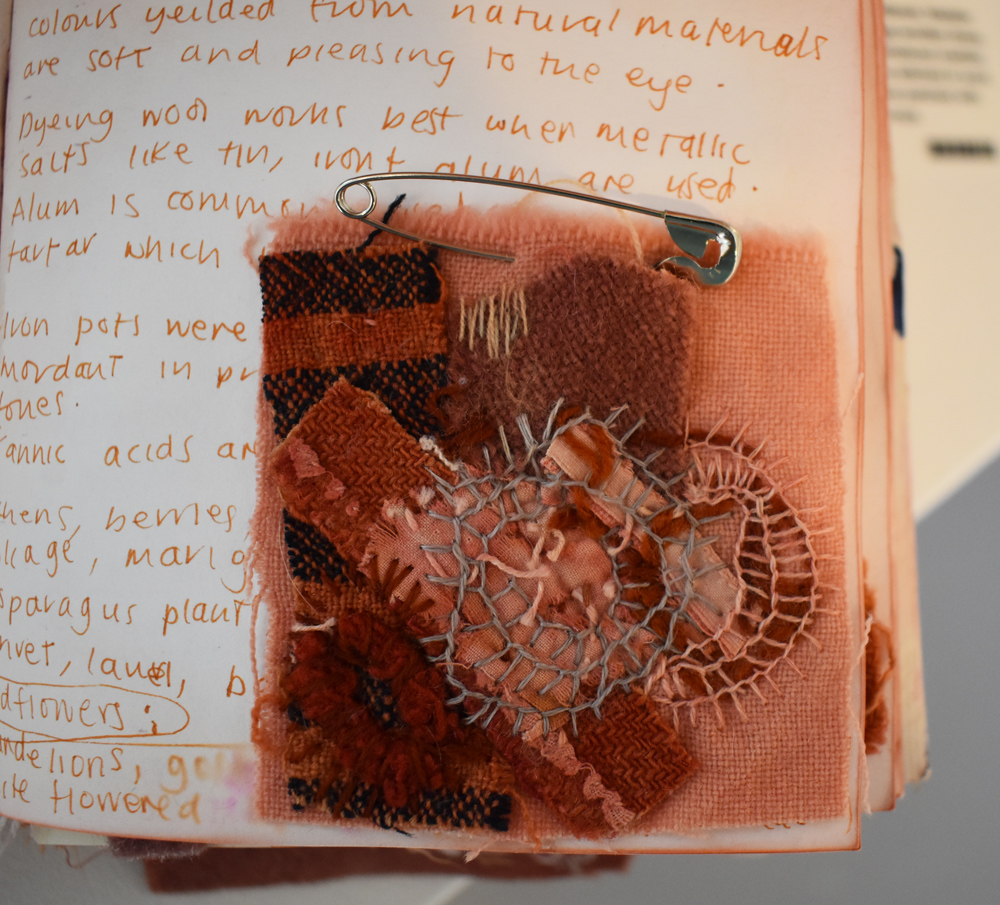 colours yeilded from natural materials
are soft and pleasing to the eye.
Dyeing wool works best when metallic
salts like tin, iron + alum are used.
Alum is common
tartar which
Iron pots were
mordant in pr
tones.
Tannic acids ar
hens, berries
liage, marig
sparagus plant
ivet, laurel, b
dflowers;
andelions, gol
ite flowered